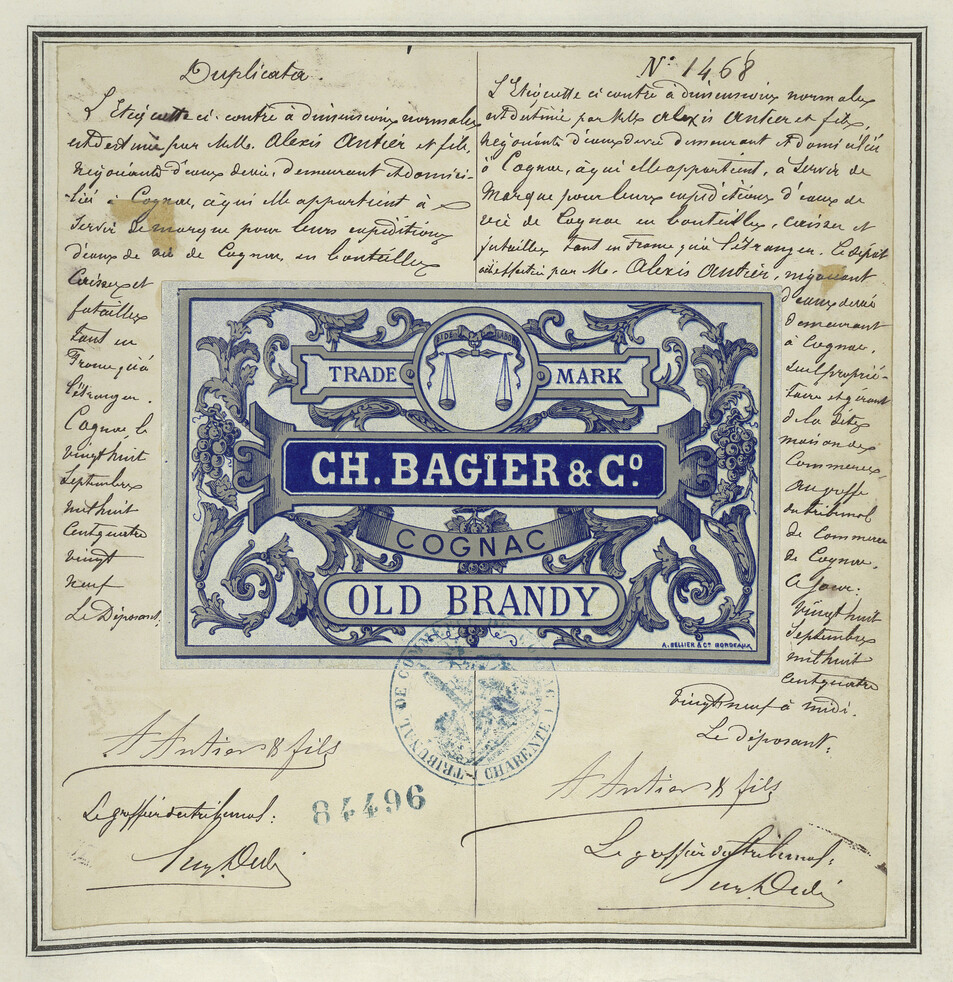 Duplicata.
L'Etiquette ci-contre à dimensions normales
est destinée par MM. Alexis Antier et fils,
négociants d'eaux de vie, demeurant et domici-
liés à Cognac, à qui elle appartient à
Servir de marque pour leurs expéditions
d'eaux de vie de Cognac en bouteilles
Caisses et
futailles
tant en
France qu'à
l'étranger.
Cognac le
vingt huit
Septembre
mil huit
cent quatre
vingt
neuf
Le Déposant.
A Antier & fils
Le greffier du tribunal:
No. 1468
L'Etiquette ci contre à dimensions normales
est destinée par MM. Alexis Antier et fils,
négociants d'eaux de vie demeurant et domiciliés
à Cognac, à qui elle appartient, à servir de
Marque pour leurs expéditions d'eaux de
vie de Cognac en bouteilles, caisses et
futailles tant en France qu'à l'étranger. Le dépôt
a été effectué par M. Alexis Antier, négociant
d'eaux de vie
demeurant
à Cognac,
seul proprié-
taire et gérant
de la dite
maison de
Commerce
au greffe
du tribunal
de Commerce
de Cognac,
Ce jour:
Vingt huit
Septembre
mil huit
cent quatre
Vingt neuf à midi.
Le déposant:
A Antier & fils
Le greffier du tribunal:
TRADE MARK
CH. BAGIER & Co.
COGNAC
OLD BRANDY
A. BELLIER & Co BORDEAUX
TRIBUNAL DE COMMERCE
CHARENTE
84496